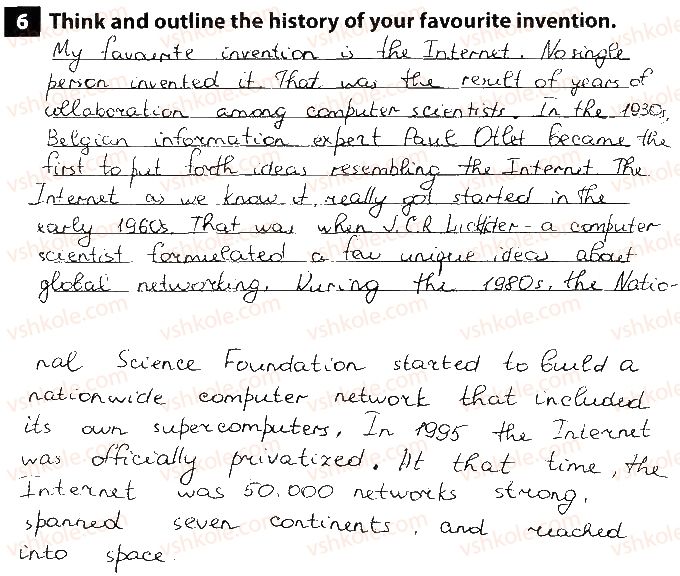 6 Think and outline the history of your favourite invention.
My favourite invention is the Internet. No single
person invented it. That was the result of years of
collaboration among computer scientists. In the 1930s,
Belgian information expert Paul Otlet became the
first to put forth ideas resembling the Internet. The
Internet as we know it, really got started in the
early 1960s. That was when J.C.R. Licklider - a computer
scientist formulated a few unique ideas about
global networking. During the 1980s, the Natio-
nal Science Foundation started to build a
nationwide computer network that included
its own supercomputers. In 1995 the Internet
was officially privatized. At that time, the
Internet was 50.000 networks strong,
spanned seven continents, and reached
into space.
vshkole.com